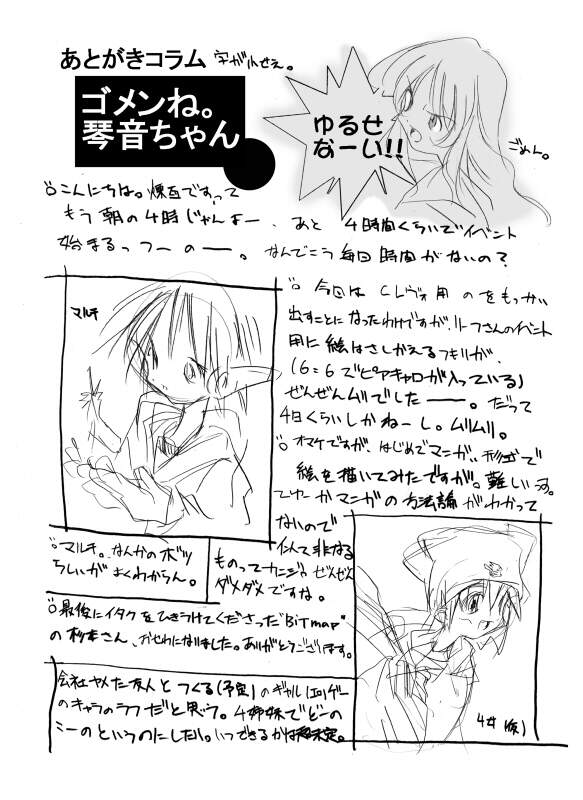 あとがきコラム 字が小せぇ。
ゴメンね。
琴音ちゃん
ゆるせ
なーい!!
ごめん。
こんにちは。煉瓦ですって
もう朝の4時じゃんよー、あと 4時間くらいでイベント
始まるっつーのー。なんでこう毎回時間がないの?
マルチ
今回は CレヴォI用のをもっかい
出すことになったわけですが、リーフさんのイベント
用に絵はさしかえるフキリが、
(6=6でピアキャロが入っている)
ぜんぜんムリでしたーー。だって
4日くらいしかねーし。ムリムリ。
オマケですが、はじめてマニガ形式で
絵を描いてみたですが。難しい
でかマニガの方法論がわかって
ないので
似て非なる
ものってカンジ。ぜんぜん
ダメダメですな。
マルチ。なんかのボツ
らしいがよくわからん。
最後にイタクをひきうけてくださった"Bitmap"
の杉本さん、おせわになりました。ありがとうございます。
会社ヤメた友人とつくる(予定)のギャル(エロ)ゲー
のキャラのラフだと思う。4姉妹でどーの
こーのというのにしたい。いつできるかは未定。
4女(仮)